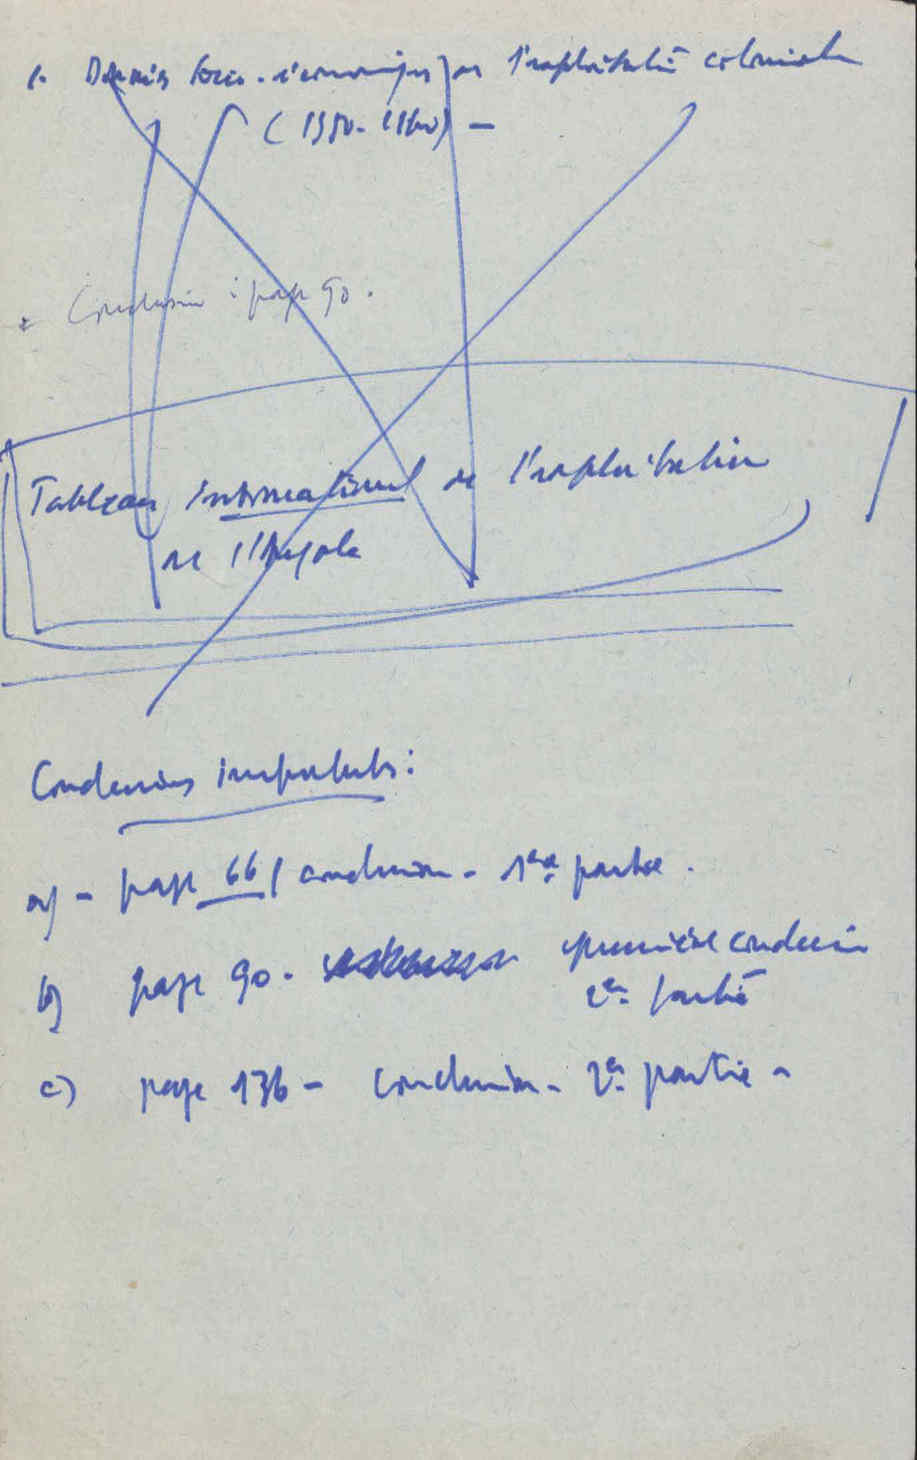 1. Données socio-économiques de l'exploitation coloniale
(1950-1960) —
* Conclusion : page 90.
Tableau international de l'exploitation
de l'Angola
Conclusions importantes :
a) - page 66 / conclusion - 1ère partie.
b) page 90 - première conclusion
2e. partie
c) page 136 - conclusion - 2e. partie -